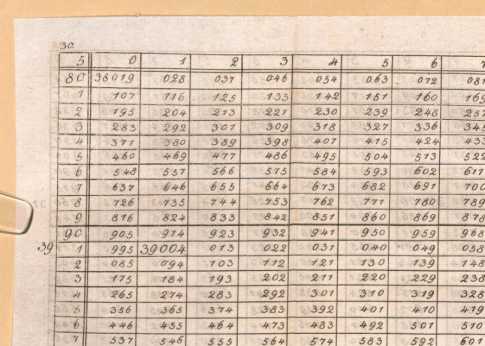 30
5 0 1 2 3 4 5 6 7
80 38019 028 037 046 054 063 072 081
1 107 116 125 133 142 151 160 169
2 195 204 213 221 230 239 248 257
3 283 292 301 309 318 327 336 345
4 371 380 389 398 407 415 424 433
5 460 469 477 486 495 504 513 522
6 548 557 566 575 584 593 602 611
7 637 646 655 664 673 682 691 700
8 726 735 744 753 762 771 780 789
9 816 824 833 842 851 860 869 878
90 905 914 923 932 941 950 959 968
39 1 995 39004 013 022 031 040 049 058
2 085 094 103 112 121 130 139 148
3 175 184 193 202 211 220 229 238
4 265 274 283 292 301 310 319 328
5 356 365 374 383 392 401 410 419
6 446 455 464 473 483 492 501 510
7 537 546 555 564 574 583 592 601